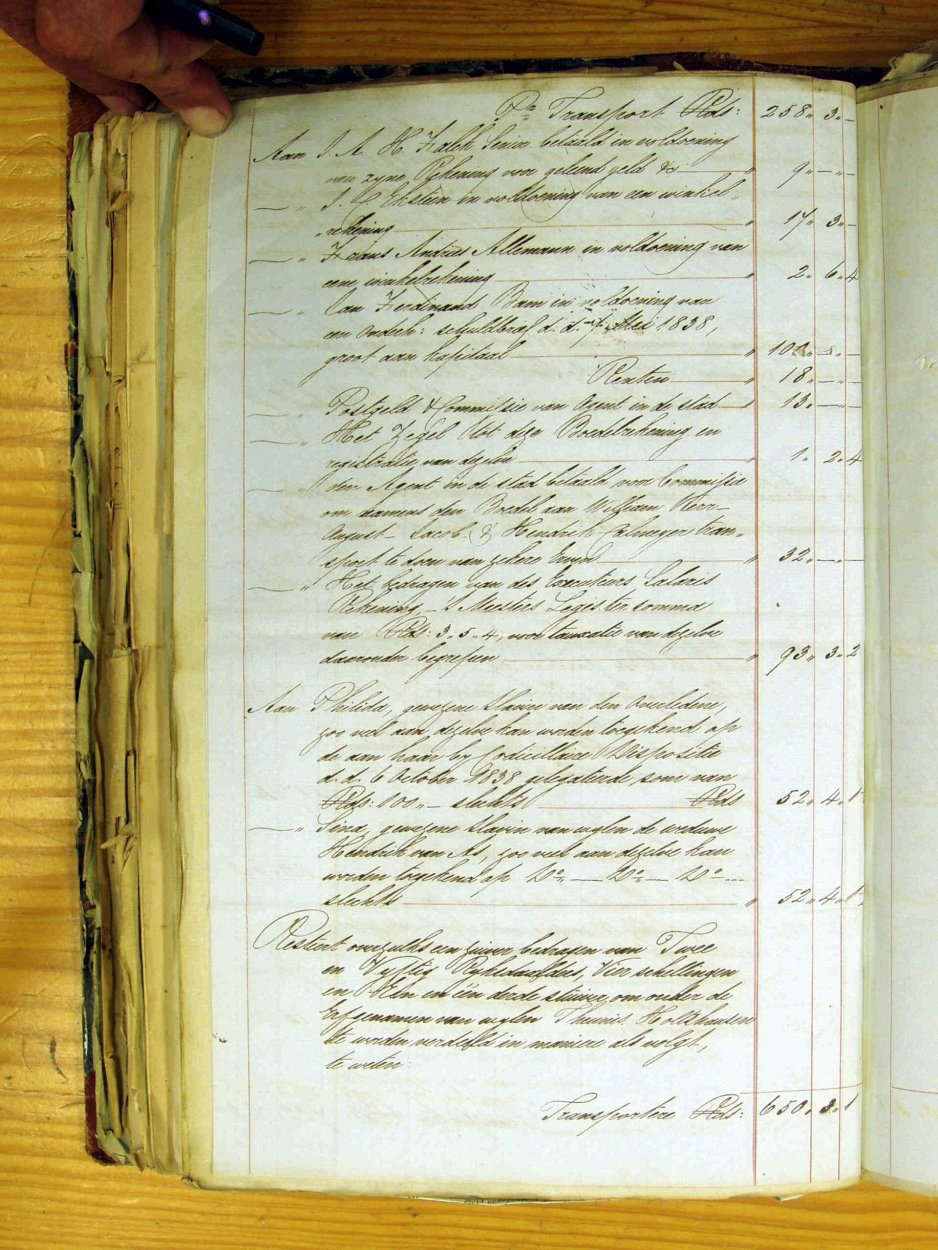 Pr Transport Rds: 258 " 3 " –
Aan J. A. H. Falck Senior betaald in voldoening
van zyne Rekening voor geleend geld &c " 9 " – " –
— " J. C. Ekstein in voldoening van een winkel "
rekening " 17 " 3 " –
— " Frans Andries Allemann in voldoening van
eene winkelrekening " 2 " 6 " 4
— " Can Ferdinand Bam in voldoening van
een Onderh: schuldbrief d. d. 7 Mei 1838,
groot aan kapitaal " 100 " – " –
Renten " 18 " – " –
— " Postgeld & Commissie van Agent in de stad " 13 " – " –
— " Het Zegel tot deze Boedelrekening en
registratie van dezelve " 1 " 2 " 4
— " den Agent in de stad betaald voor Commissie
om namens den Boedel aan William Kerr –
August – Jacob & Hendrik tran "
sport te doen van zekere " 32 " – " –
— " Het bedragen van des Executeurs Salaris
Rekening – 's Meesters Leges ter somma
van Rds: 3 " 5 " 4, voor taxatie van dezelve
daaronder begrepen " 93 " 3 " 2
Aan Philida, gewezene slavin van den Overledene,
zoo veel aan dezelve kan worden toegekend op
de aan haar by Codicillaire Dispositie
d. d. 6 October 1838 gelegateerde som van
Rds: 100 " – slechts Rds 52 " 4 " 1
— " Sena, gewezene slavin van wylen de weduwe
Hendrik van As, zoo veel aan dezelve kan
worden toegekend op Do — Do — Do
slechts " 52 " 4 " 1
Resteert overzulks een zuiver bedragen van Twee
en Vyftig Ryksdaalders, Vier schellingen
en Een en één derde stuiver, om onder de
Erfgenamen van wylen Thunis Holtshausen
te worden verdeeld in maniere als volgt,
te weten:
Transportere Rds: 650 " 3 " 1